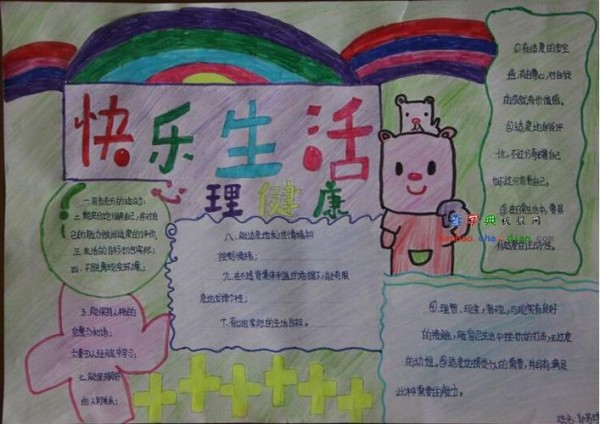 快乐生活
心理健康
一、有充分的适应力;
二、能充分地了解自己,并对自
己的能力做出适度的评价;
三、生活的目标切合实际;
四、不脱离现实环境;
五、能保持人格的
完整与和谐;
六、善于从经验中学习;
七、能保持良好
的人际关系;
八、能适度地发泄情绪和
控制情绪;
九、在不违背集体利益的前提下,能有限
度地发挥个性;
①有适度的安全
感,有自尊心,对自我
②适度地自我评
价,不过分夸耀自己
也不过分苛责自己。
③在日常生活中,具有
④理智、现实、客观,与现实有良好
的接触,能容忍生活中挫折的打击,无过度
的幻想。⑤适度地接受个人的需要,并具有满足
此种需要的能力。